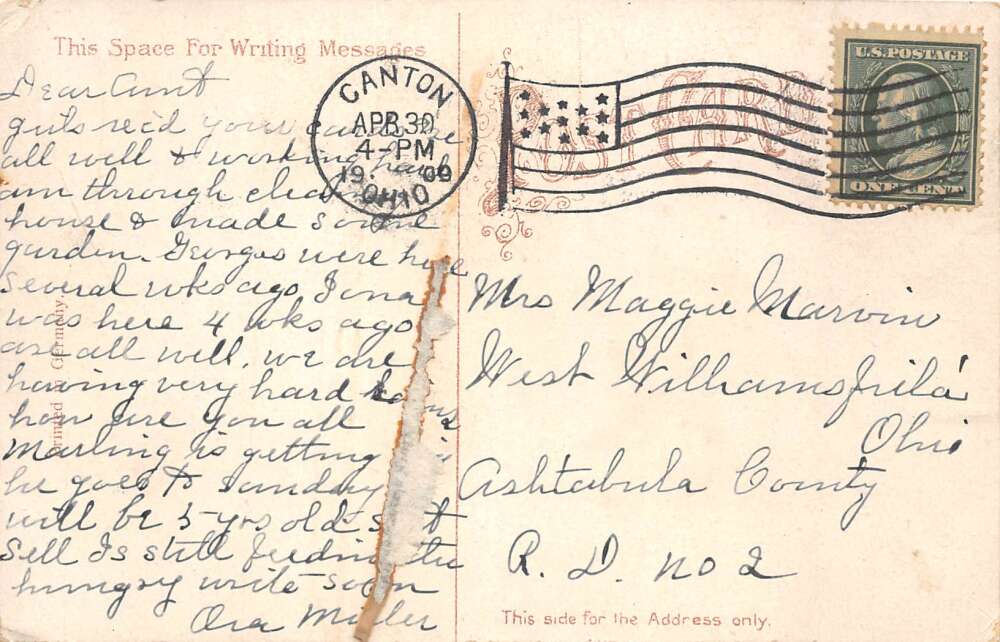 This Space For Writing Messages
Dear Aunt
girls rec'd your
all well & working hard
am through
house & made some
garden. Georges were here
several wks ago Iona
was here 4 wks ago
are all well. we are
having very hard
how are you all
is getting
he goes to sunday
will be 5 yrs old
Sell Is still feeding the
hungry write soon
Ora Miller
Printed in Germany.
CANTON
APR 30
4-PM
19 09
OHIO
POST CARD
U.S. POSTAGE
ONE CENT
Mrs Maggie Marvin
West Williamsfield
Ohio
Ashtabula County
R. D. no 2
This side for the Address only.